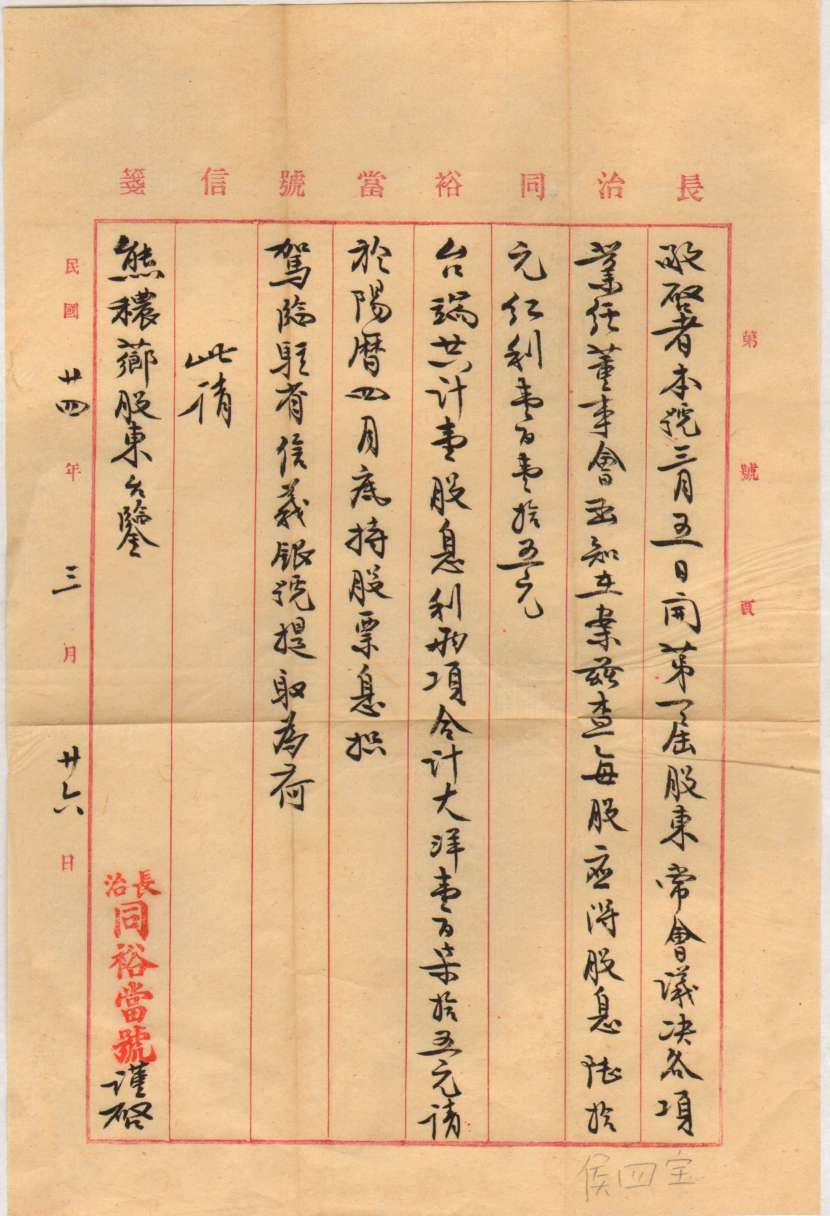 長治同裕當號信箋
第 號 頁
敬啓者本號三月五日開第一屆股東常會議决各項
業經董事會函知在案茲查每股應得股息陸拾
元紅利壹百壹拾五元
台端共計壹股息利兩項合計大洋壹百柒拾五元請
於陽曆四月底持股票息摺
駕臨駐省信義銀號提取為荷
此請
熊穠薌股東台鑒
長治
同裕當號
謹啓
民國廿四年三月廿六日
侯四宝